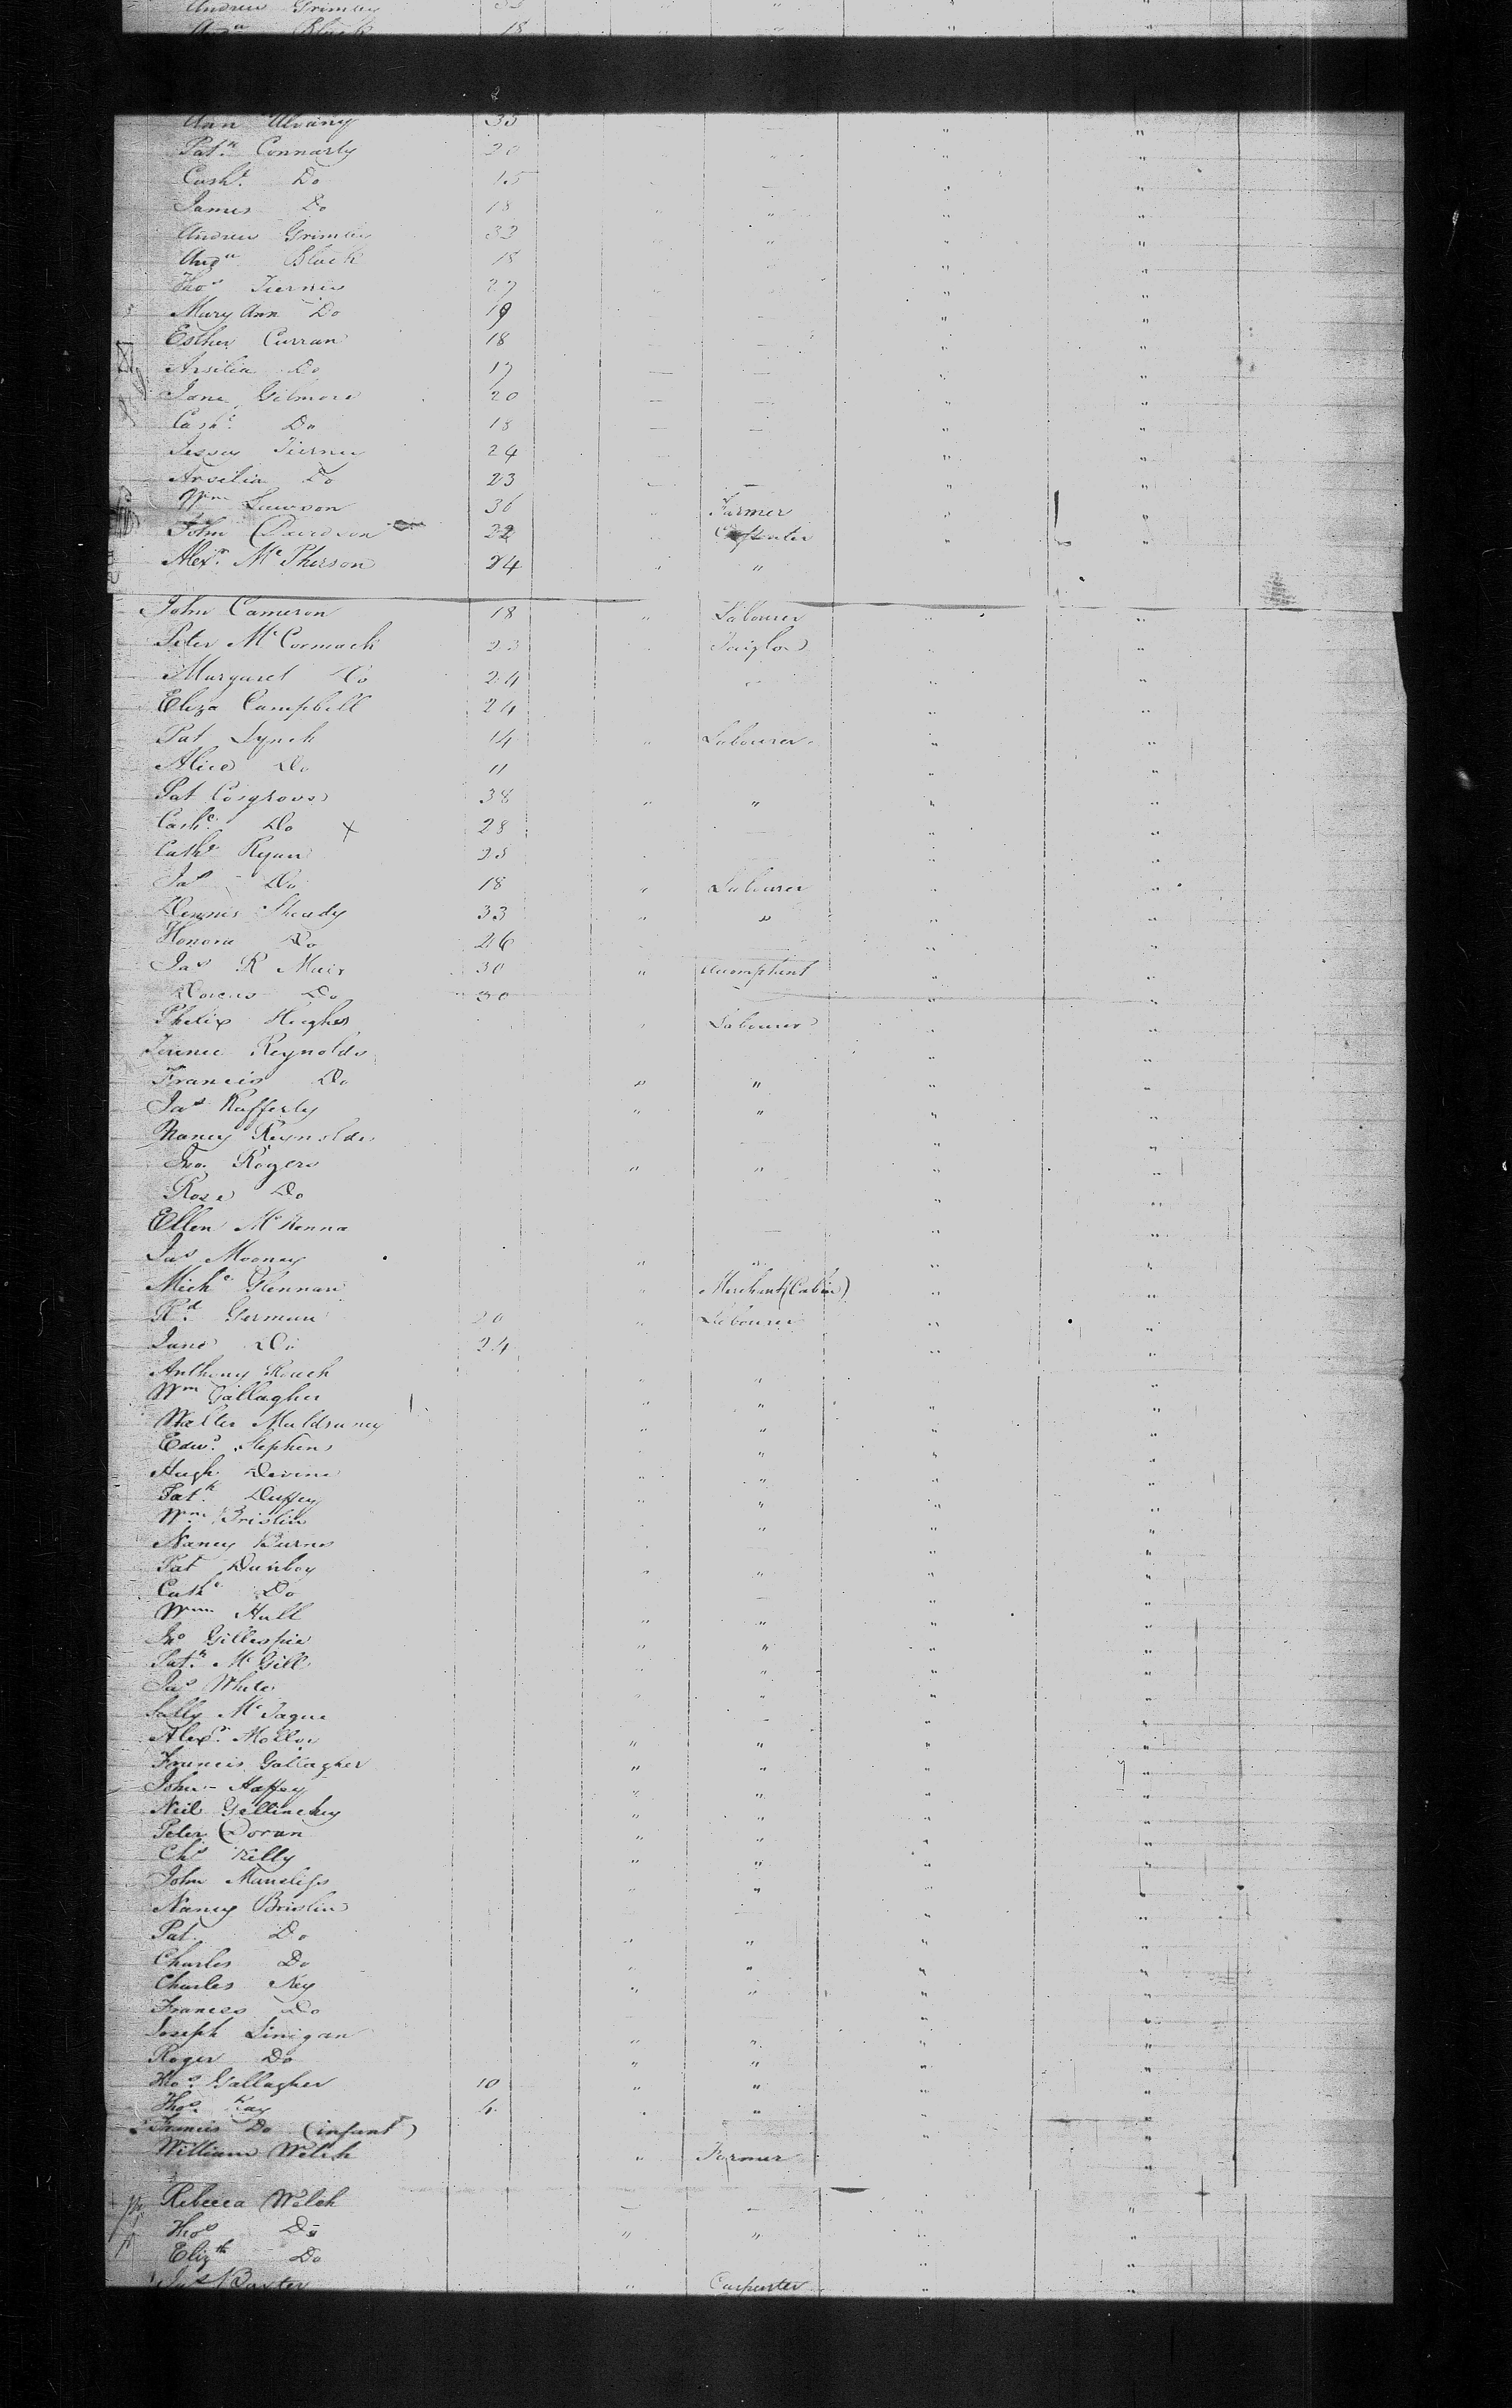 Andrew Grimley 33 " "
Aug^n Black 18 " "
Ann 35 " "
Pat^k Connarty 20 " "
Cath^e Do 15 " "
James Do 18 " " " "
Andrew Grimley 33 " " " "
Aug^n Black 18 " "
Tho^s Tierney 27 " "
Mary Ann Do 19 " "
Esther Curran 18 " "
Arsilia Do 17 — — " "
Jane Gilmore 20 — — " "
Cath^e Do 18 — — " "
Tierney 24 " "
Arsilia Do 23 — — " "
W^m Lawson 36 " Farmer " "
John Davidson 22 " Carpenter " "
Alex^r McPherson 24 " " " "
John Cameron 18 " Labourer " "
Peter McCormack 23 " "
Margaret Do 24 " "
Eliza Campbell 24 " "
Pat Lynch 14 " Labourer " "
Alice Do 11 " "
Pat Cosgrove 38 " " " "
Cath^e Do x 28 — " "
Cath^e Ryan 25 " "
Ja^s Do 18 " Labourer " "
Dennis Sheady 33 " " " "
Honora Do 26 " "
Ja^s R Muir 30 " Accomptant " "
Dorcas Do 30 " "
Phelix Hughes " Labourer " "
Terence Reynolds " "
Francis Do " " " "
Ja^s Rafferty " " " "
Nancy Reynolds — " "
Jno. Rogers " " " "
Rose Do — " "
Ellen McKenna — " "
Ja^s Mooney " " " "
Mich^l Glennan " Merchant (Cabin) " "
R^d German 20 " Labourer " "
Jane Do 24 " "
Anthony Roach " " " "
W^m Gallagher " " " "
Walter Muldraney " " " "
Edw^d Stephens " " " "
Hugh Devine " " " "
Pat^k Duffey " " " "
W^m Brislin " " " "
Nancy Burns — " "
Pat Dunboy " " " "
Cath^e Do — " "
W^m Hull " " " "
Jno Gillespie " " " "
Pat^k McGill " " " "
Ja^s White " " " "
Sally McTague — " "
Alex^r Molloy " " " "
Francis Gallagher " " " "
John Haffey " " " "
Neil Gallinchy " " " "
Peter Doran " " " "
Ch^s Kelly " " " "
John " " " "
Nancy Brislin — " "
Pat Do " " " "
Charles Do " " " "
Charles Key " " " "
Frances Do " "
Joseph Linigan " " " "
Roger Do " " " "
Tho^s Gallagher 10 " " " "
Tho^s Kay 6 " " " "
Francis Do (infant) " "
William Welsh " Farmer " "
Rebecca Welsh — — "
Tho^s Do " " " "
Eliz^th Do " "
Ja^s Baxter " Carpenter " "